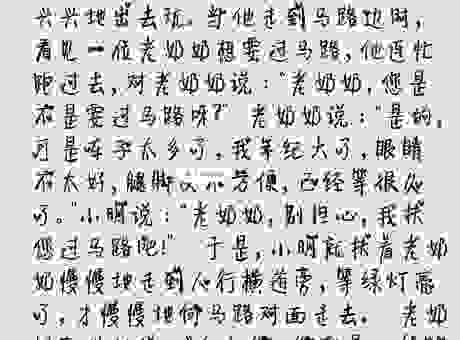 兴兴地出去玩。当他走到马路边时，
看见一位老奶奶想要过马路，他连忙
跑过去，对老奶奶说："老奶奶，您是
不是要过马路呀？" 老奶奶说："是的，
可是车子太多了，我年纪大了，眼睛
不太好，腿脚又不方便，已经等很久
了。"小明说："老奶奶，别担心，我扶
您过马路吧！" 于是，小明就扶着老奶
奶慢慢地走到人行横道旁，等绿灯亮
了，才慢慢地向马路对面走去。 老奶